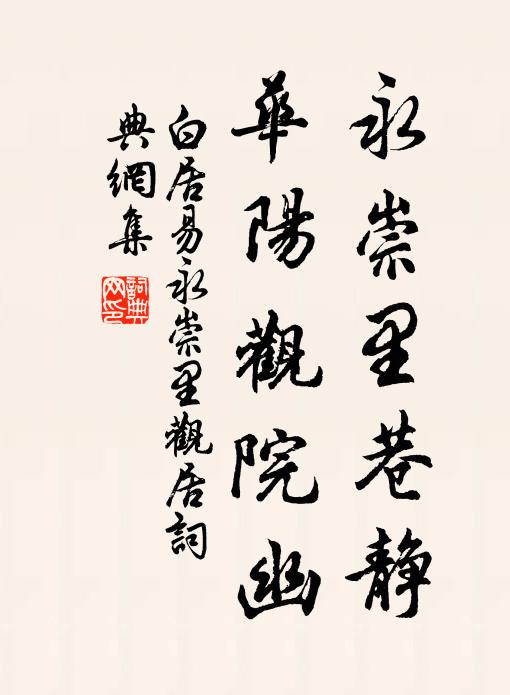 永崇里巷静
華陽觀院幽
白居易永崇里觀居詞
典網集
詞典
网印